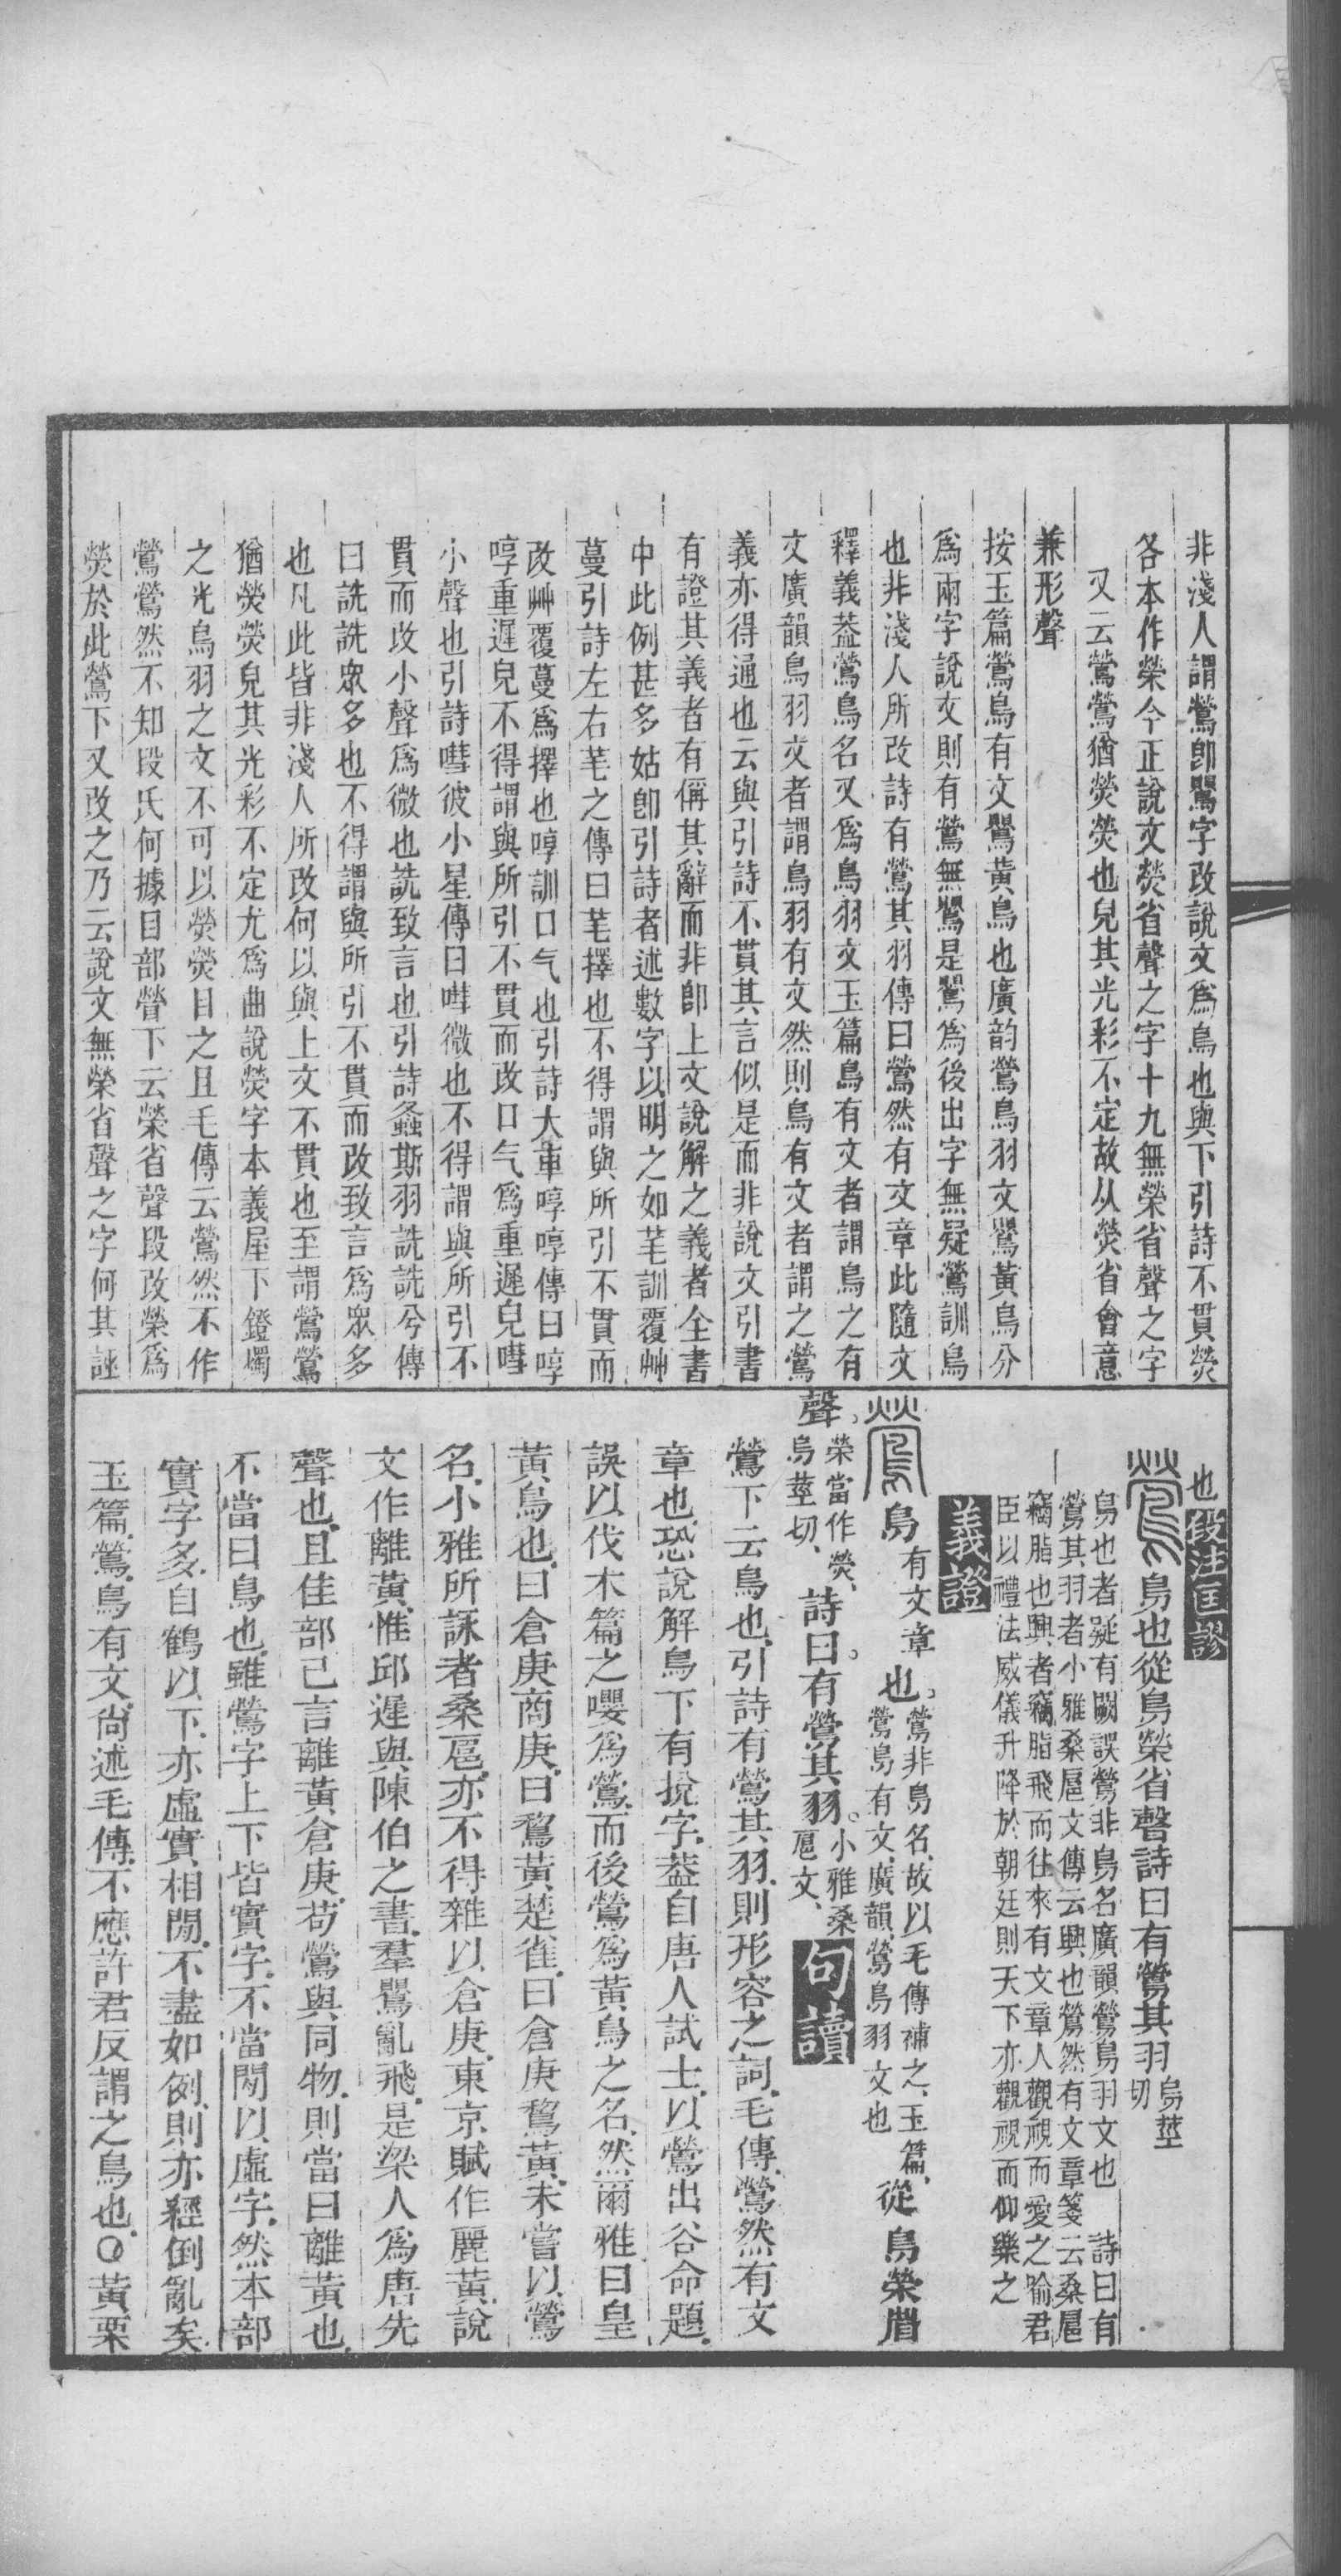 非淺人謂鶯卽鸎字改說文爲鳥也與下引詩不貫熒
各本作榮今正說文熒省聲之字十九無榮省聲之字
又云鶯鶯猶熒熒也皃其光彩不定故从熒省會意
兼形聲
按玉篇鶯鳥有文鸎黃鳥也廣韵鶯鳥羽文鸎黃鳥分
爲兩字說文則有鶯無鸎是鸎爲後出字無疑鶯訓鳥
也非淺人所改詩有鶯其羽傳曰鶯然有文章此隨文
釋義葢鶯鳥名又爲鳥羽文玉篇鳥有文者謂鳥之有
文廣韻鳥羽文者謂鳥羽有文然則鳥有文者謂之鶯
義亦得通也云與引詩不貫其言似是而非說文引書
有證其義者有偁其辭而非卽上文說解之義者全書
中此例甚多姑卽引詩者述數字以明之如芼訓覆艸
蔓引詩左右芼之傳曰芼擇也不得謂與所引不貫而
改艸覆蔓爲擇也啍訓口气也引詩大車啍啍傳曰啍
啍重遲皃不得謂與所引不貫而改口气爲重遲皃嘒
小聲也引詩嘒彼小星傳曰嘒微也不得謂與所引不
貫而改小聲爲微也詵致言也引詩螽斯羽詵詵兮傳
曰詵詵眾多也不得謂與所引不貫而改致言爲眾多
也凡此皆非淺人所改何以與上文不貫也至謂鶯鶯
猶熒熒皃其光彩不定尤爲曲說熒字本義屋下鐙燭
之光鳥羽之文不可以熒熒目之且毛傳云鶯然不作
鶯鶯然不知段氏何據目部營下云榮省聲段改榮爲
熒於此鶯下又改之乃云說文無榮省聲之字何其誣
也段注匡謬
鳥也從鳥榮省聲詩曰有鶯其羽烏莖切
鳥也者疑有闕誤鶯非鳥名廣韻鶯鳥羽文也 詩曰有
鶯其羽者小雅桑扈文傳云興也鶯然有文章箋云桑扈
竊脂也興者竊脂飛而往來有文章人觀視而愛之喻君
臣以禮法威儀升降於朝廷則天下亦觀視而仰樂之
義證
鳥有文章也鶯非鳥名故以毛傳補之玉篇鶯鳥有文廣韻鶯鳥羽文也從鳥榮省
聲榮當作熒烏莖切詩曰有鶯其羽小雅桑扈文句讀
鶯下云鳥也引詩有鶯其羽則形容之詞毛傳鶯然有文
章也恐說解鳥下有挩字葢自唐人試士以鶯出谷命題
誤以伐木篇之嚶爲鶯而後鶯爲黃鳥之名然爾雅曰皇
黃鳥也曰倉庚商庚曰鵹黃楚雀曰倉庚鵹黃未嘗以鶯
名小雅所詠者桑扈亦不得雜以倉庚東京賦作麗黃說
文作離黃惟邱遲與陳伯之書羣鸎亂飛是梁人爲唐先
聲也且隹部已言離黃倉庚苟鶯與同物則當曰離黃也
不當曰鳥也雖鶯字上下皆實字不當閒以虛字然本部
實字多自鶴以下亦虛實相閒不盡如例則亦經倒亂矣
玉篇鶯鳥有文尙述毛傳不應許君反謂之鳥也○黃栗